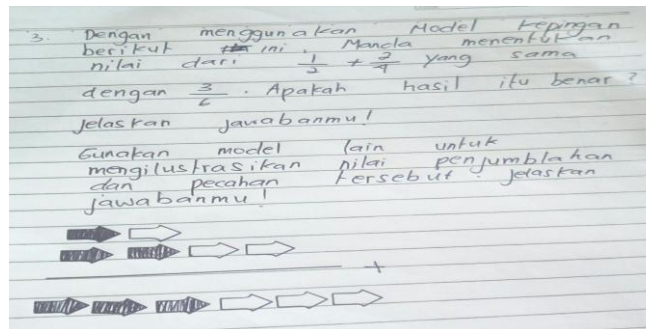 3. Dengan menggunakan Model kepingan
berikut ini, Manda menentukan
nilai dari 1/2 + 2/4 yang sama
dengan 3/6. Apakah hasil itu benar?
Jelaskan jawabanmu!
Gunakan model lain untuk
mengilustrasikan nilai penjumblahan
dan pecahan tersebut. jelaskan
jawabanmu!
+